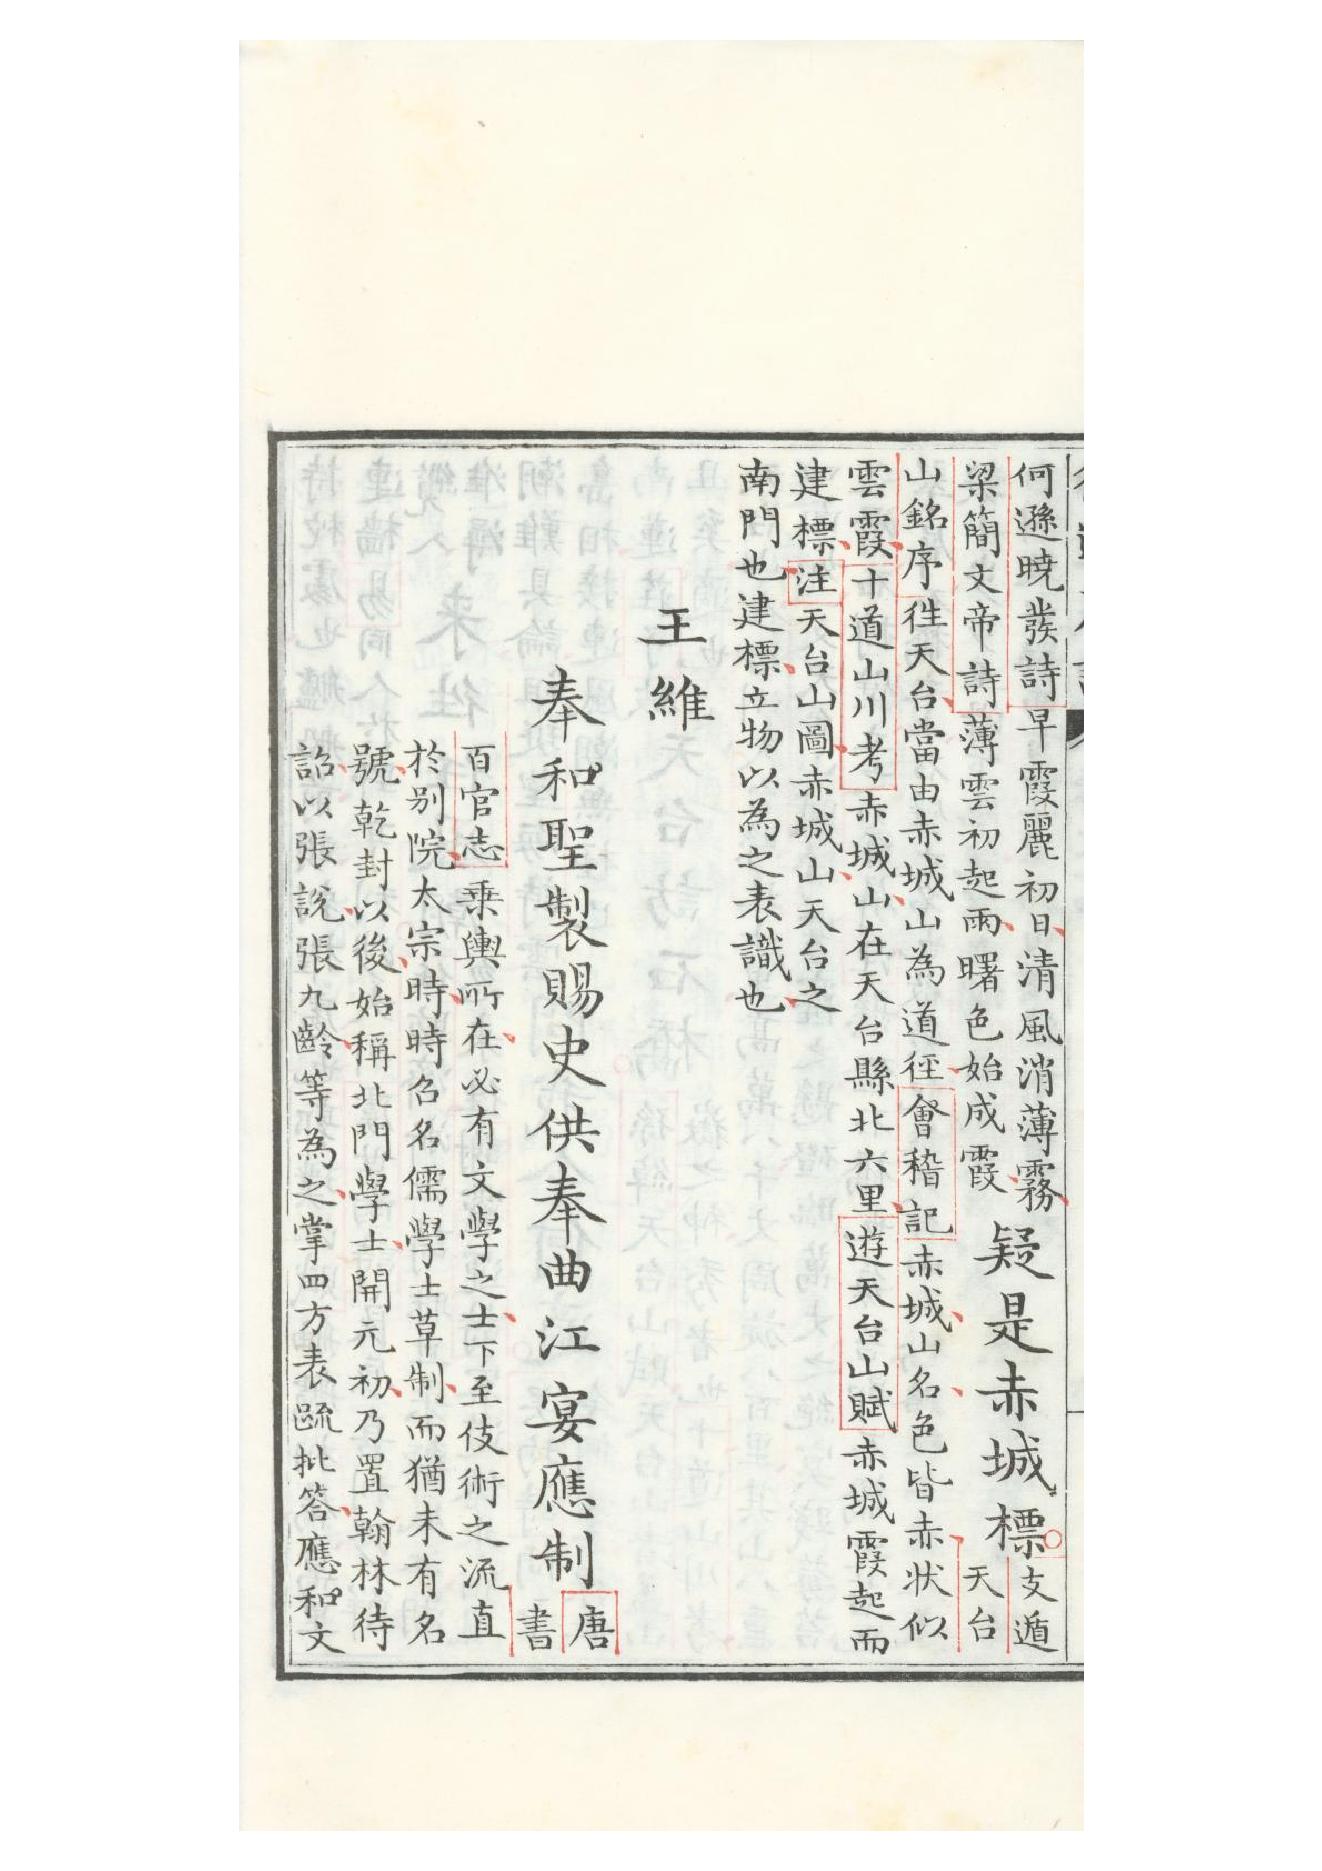 何遜暁發詩早霞麗初日清風消薄霧
梁簡文帝詩薄雲初起雨曙色始成霞
疑是赤城標
支遁
天台
山銘序徃天台當由赤城山為道徑會稽記赤城山名色皆赤狀似
雲霞十道山川考赤城山在天台縣北六里遊天台山賦赤城霞起而
建標注天台山圖赤城山天台之
南門也建標立物以為之表識也
王維
奉和聖製賜史供奉曲江宴應制
唐
書
百官志乗輿所在必有文學之士下至伎術之流直
於別院太宗時時召名儒學士草制而猶未有名
號乾封以後始稱北門學士開元初乃置翰林待
詔以張說張九齡等為之掌四方表䟽批答應和文